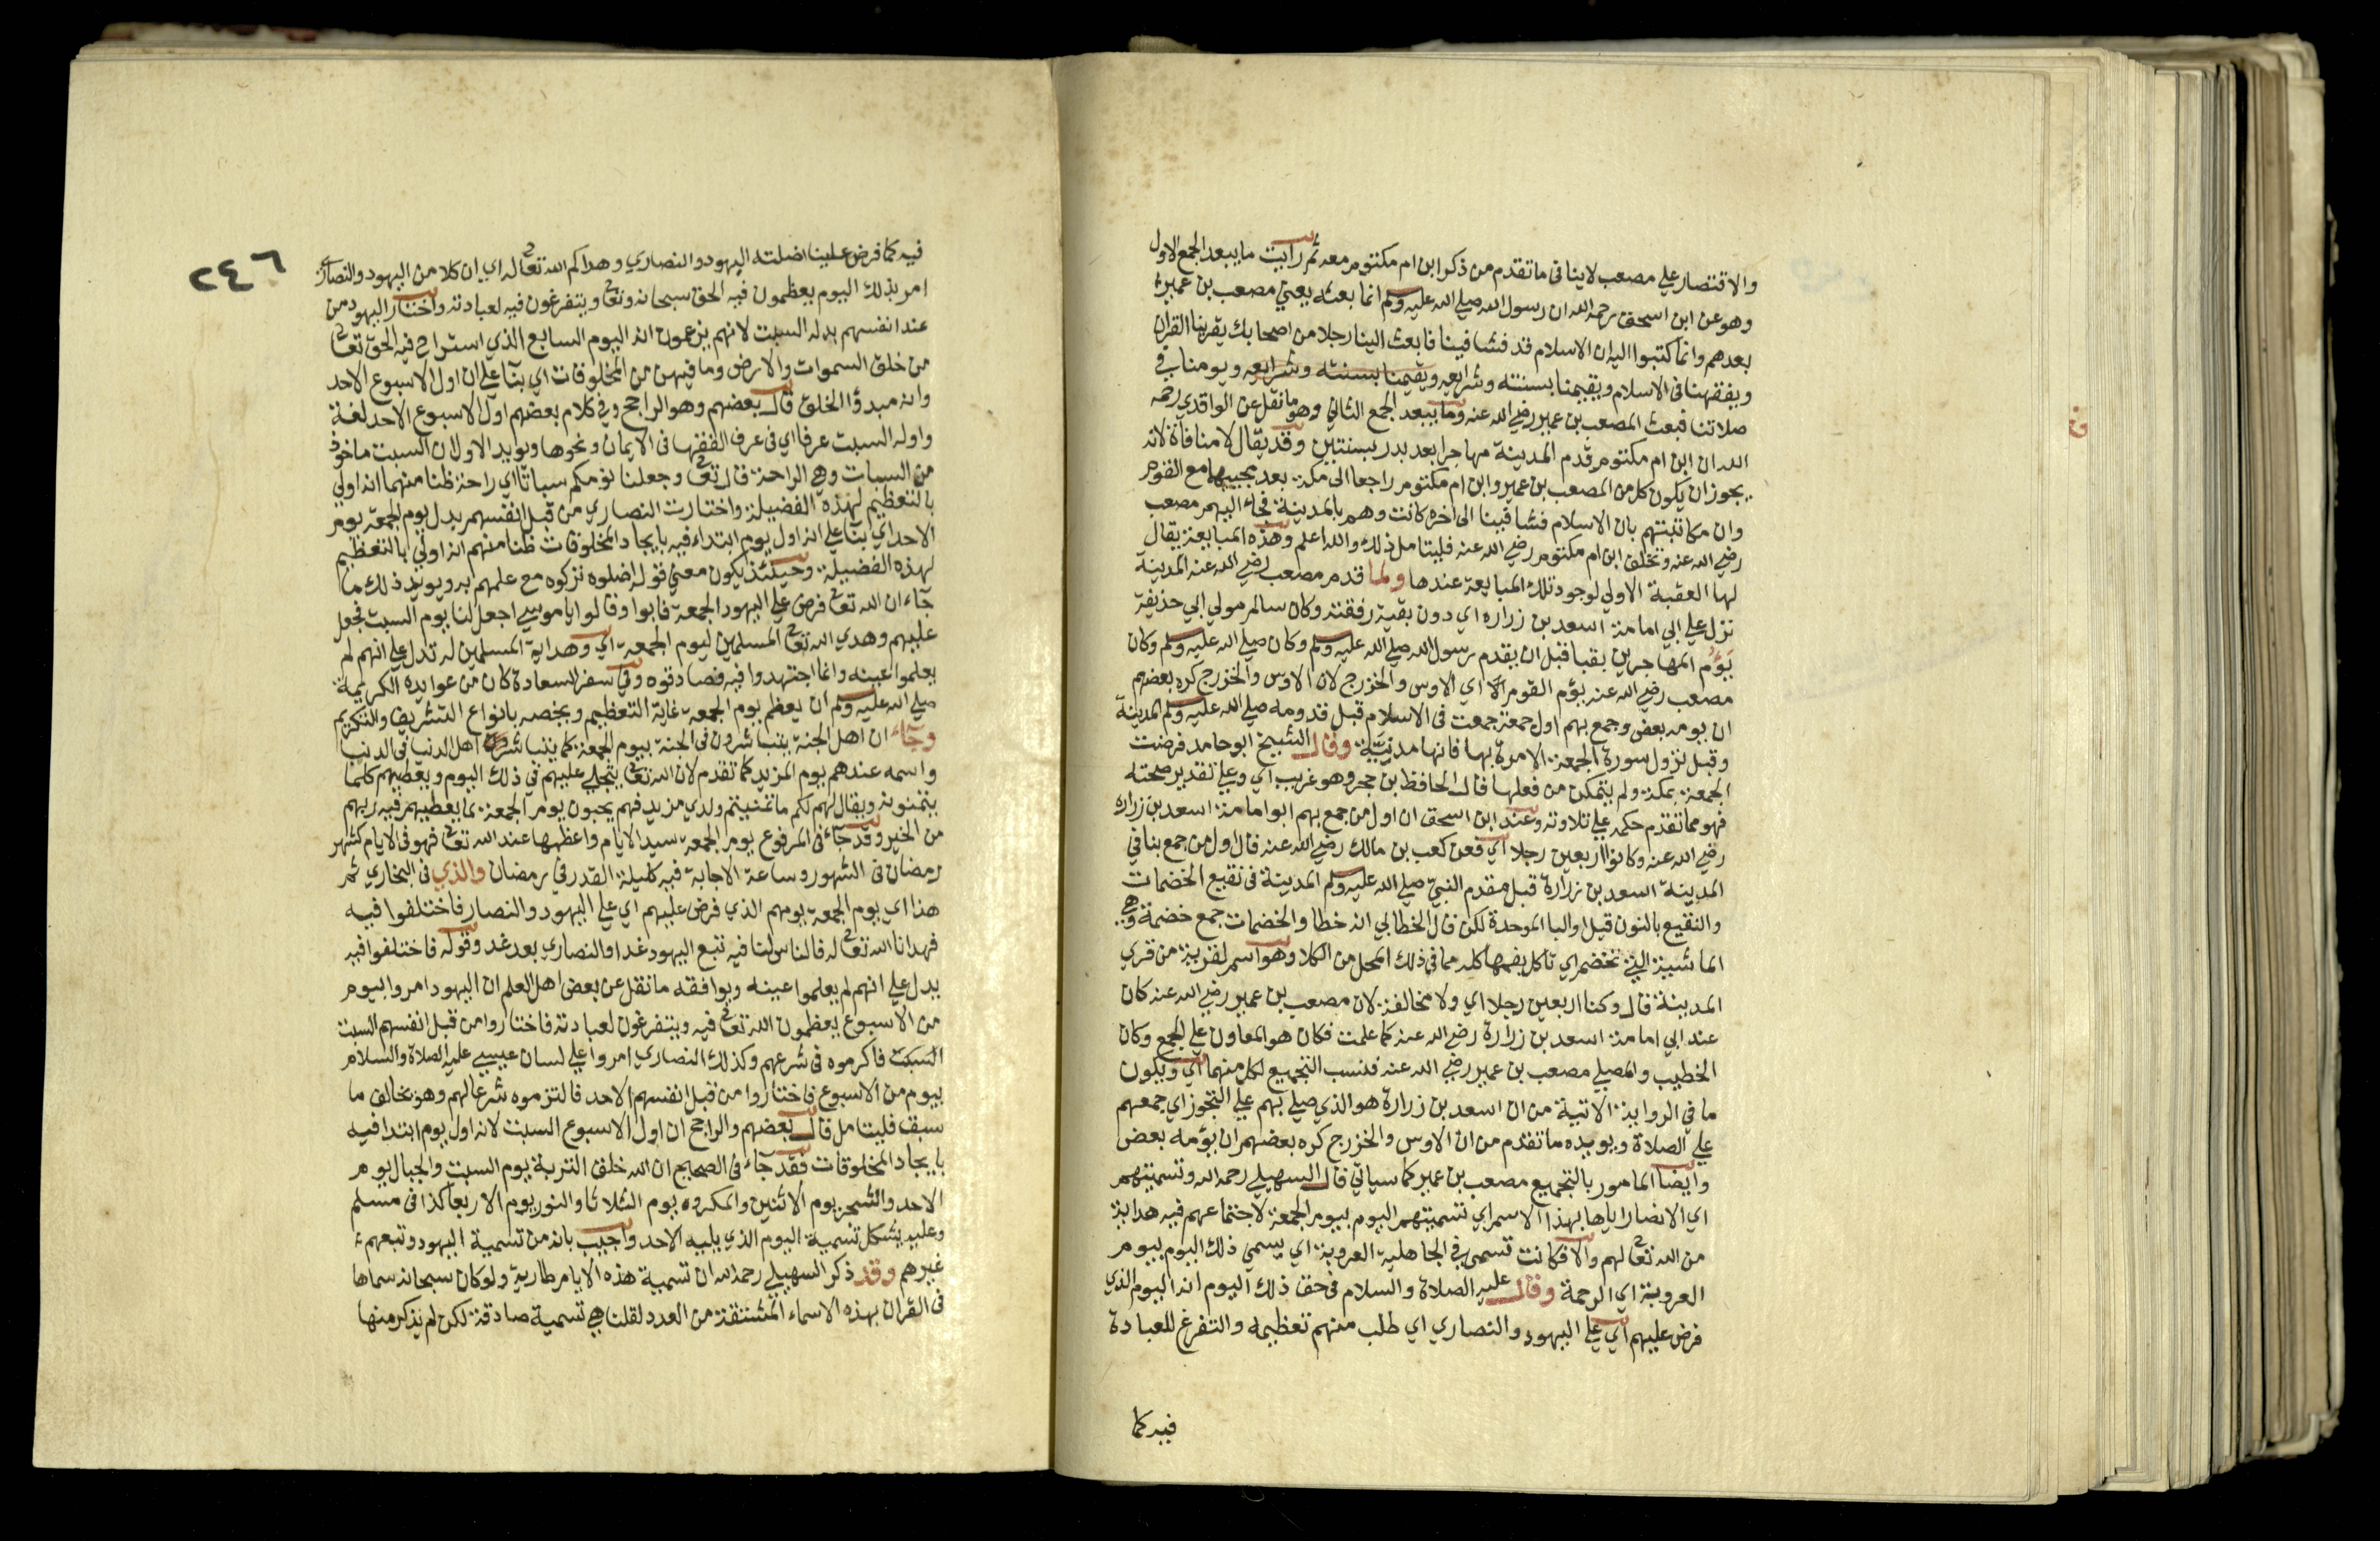 والاقتصار علي مصعب لاينافى ماتقدم من ذكر ابن ام مكتوم معه ثم رايت ما يبعد الجمع الاول
وهو عن ابن اسحق رحمه الله ان رسول الله صلي الله عليه وسلم انما بعثه يعني مصعب بن عمير
بعدهم وانما كتبوا اليه ان الاسلام قد فشا فينا فابعث الينا رجلا من اصحابك يقرينا القران
ويفقهنا فى الاسلام ويقيمنا بسنته وشرايعه ويقيمنا بسنته وشرايعه ويومنا في
صلاتنا فبعث المصعب بن عمير رضي الله عنه وما يبعد الجمع الثاني وهو ما نقل عن الواقدي رحمه
الله ان ابن ام مكتوم قدم المدينة مهاجرا بعد بدر بسنتين وقد يقال لا منافاة لانه
يجوز ان يكون كل من المصعب بن عمير وابن ام مكتوم راجعا الى مكة بعد مجييهما مع القوم
وان مكاتبتهم بان الاسلام فشا فينا الى اخره كانت وهم بالمدينة فجاء اليهم مصعب
رضي الله عنه وتخلف ابن ام مكتوم رضي الله عنه فليتامل ذلك والله اعلم وهذه المبايعة يقال
لها العقبة الاولي لوجود تلك المبايعة عندها ولما قدم مصعب رضي الله عنه المدينة
نزل علي ابي امامة اسعد بن زراره اي دون بقية رفقته وكان سالم مولي ابي حذيفة
يَؤُم المهاجرين بقبا قبل ان يقدم رسول الله صلي الله عليه وسلم وكان صلي الله عليه وسلم وكان
مصعب رضي الله عنه يؤم القوم اي الاوس والخزرج لان الاوس والخزرج كره بعضهم
ان يومه بعض وجمع بهم اول جمعة جمعت فى الاسلام قبل قدومه صلي الله عليه وسلم المدينة
وقبل نزول سورة الجمعة الامرة بها فانها مدنية وقال الشيخ ابو حامد فرضت
الجمعة بمكة ولم يتمكن من فعلها قال الحافظ بن حجر وهو غريب اي وعلي تقدير صحته
فهو مما تقدم حكمه علي تلاوته وعند ابن اسحق ان اول من جمع بهم ابو امامة اسعد بن زراره
رضي الله عنه وكانوا اربعين رجلا اي فعن كعب بن مالك رضي الله عنه قال اول من جمع بنا في
المدينة اسعد بن زرارة قبل مقدم النبي صلي الله عليه وسلم المدينة فى نقيع الخضمات
والنقيع بالنون قيل او البا الموحدة لكن قال الخطابي انه خطا والخضمات جمع خضمة وهي
الماشية التي تخضم اي تاكل بفمها كله مما في ذلك المحل من الكلا وهو اسم لقرية من قري
المدينة قال وكنا اربعين رجلا اي ولا مخالفة لان مصعب بن عمير رضي الله عنه كان
عند ابي امامة اسعد بن زرارة رضي الله عنه كما علمت فكان هو المعاون علي الجمع وكان
الخطيب والمصلي مصعب بن عمير رضي الله عنه فنسب التجميع لكل منهما اي ويكون
ما في الرواية الاتية من ان اسعد بن زرارة هو الذي صلي بهم علي التجوز اي جمعهم
علي الصلاة ويويده ما تقدم من ان الاوس والخزرج كره بعضهم ان يؤمه بعض
وايضا المامور بالتجميع مصعب بن عمير كما سياتي قال السهيلي رحمه الله وتسميتهم
اي الانصار اياها بهذا الاسم اي تسميتهم اليوم بيوم الجمعة لاجتماعهم فيه هداية
من الله تعالى لهم والا فكانت تسمى في الجاهلية العروبة اي يسمي ذلك اليوم بيوم
العروبة اي الرحمة وقال عليه الصلاة والسلام فى حق ذلك اليوم انه اليوم الذي
فرض عليهم اي علي اليهود والنصاري اي طلب منهم تعظيمه والتفرغ للعبادة
فيه كما
٢٤٦
فيه كما فرض علينا اضلته اليهود والنصاري وهداكم الله تعالى له اي ان كلا من اليهود والنصارى
امر بذلك اليوم يعظمون فيه الحق سبحانه وتعالى ويتفرغون فيه لعبادته واختار اليهود من
عند انفسهم بدله السبت لانهم يزعمون انه اليوم السابع الذي استراح فيه الحق تعالى
من خلق السموات والارض وما فيهن من المخلوقات اي بناء علي ان اول الاسبوع الاحد
وانه مبدؤا الخلق قال بعضهم وهو الراجح وفي كلام بعضهم اول الاسبوع الاحد لغة
واوله السبت عرفا اي فى عرف الفقها فى الايمان ونحوها ويويد الاول ان السبت ماخوذ
من السبات وهي الراحة قال تعالى وجعلنا نومكم سباتا اي راحة ظنا منهما انه اولي
بالتعظيم لهذه الفضيلة واختارت النصاري من قبل انفسهم بدل يوم الجمعة يوم
الاحد اي بناء علي انه اول يوم ابتداء فيه بايجاد المخلوقات ظنا منهم انه اولي بالتعظيم
لهذه الفضيلة وحينئذ يكون معني قوله اضلوه تركوه مع علمهم به ويويد ذلك ما
جاء ان الله تعالى فرض علي اليهود الجمعة فابوا وقالوا يا موسي اجعل لنا يوم السبت فجعل
عليهم وهدي الله تعالى المسلمين ليوم الجمعة اي وهداية المسلمين له تدل علي انهم لم
يعلموا عينه وانما اجتهدوا فيه فصادقوه وفي سفر السعادة كان من عوايده الكريمة
صلي الله عليه وسلم ان يعظم يوم الجمعة غاية التعظيم ويخصه بانواع التشريف والتكريم
وجاء ان اهل الجنة يتباشرون فى الجنة بيوم الجمعة كما يتباشرون اهل الدنيا فى الدنيا
واسمه عندهم يوم المزيد كما تقدم لان الله تعالى يتجلي عليهم في ذلك اليوم ويعطيهم كلما
يتمنونه ويقال لهم لكم ما تمنيتم ولدي مزيد فهم يحبون يوم الجمعة لما يعطيهم فيه ربهم
من الخير وقد جاء فى المرفوع يوم الجمعة سيد الايام واعظمها عند الله تعالى فهو فى الايام كشهر
رمضان فى الشهور وساعة الاجابة فيه كليلة القدر في رمضان والذي فى البخاري ثم
هذا اي يوم الجمعة يومهم الذي فرض عليهم اي علي اليهود والنصار فاختلفوا فيه
فهدانا الله تعالى له فالناس لنا فيه تبع اليهود غدا والنصاري بعد غد وقوله فاختلفوا فيه
يدل علي انهم لم يعلموا عينه ويوافقه ما نقل عن بعض اهل العلم ان اليهود امروا بيوم
من الاسبوع يعظمون الله تعالى فيه ويتفرغون لعبادته فاختاروا من قبل انفسهم السبت
السبت فاكرموه فى شرعهم وكذلك النصاري امروا علي لسان عيسي عليه الصلاة والسلام
بيوم من الاسبوع فاختاروا من قبل انفسهم الاحد فالتزموه شرعا لهم وهو يخالف ما
سبق فليتامل قال بعضهم والراجح ان اول الاسبوع السبت لانه اول يوم ابتدا فيه
بايجاد المخلوقات فقد جاء فى الصحيح ان الله خلق التربة يوم السبت والجبال يوم
الاحد والشجر يوم الاثنين والمكروه يوم الثلاثا والنور يوم الاربعا كذا فى مسلم
وعليه يشكل تسمية اليوم الذي يليه الاحد واجيب بانه من تسمية اليهود وتبعهم
غيرهم وقد ذكر السهيلي رحمه الله ان تسمية هذه الايام طارية ولو كان سبحانه سماها
فى القران بهذه الاسماء المشتقة من العدد لقلنا هي تسمية صادقة لكن لم يذكر منها